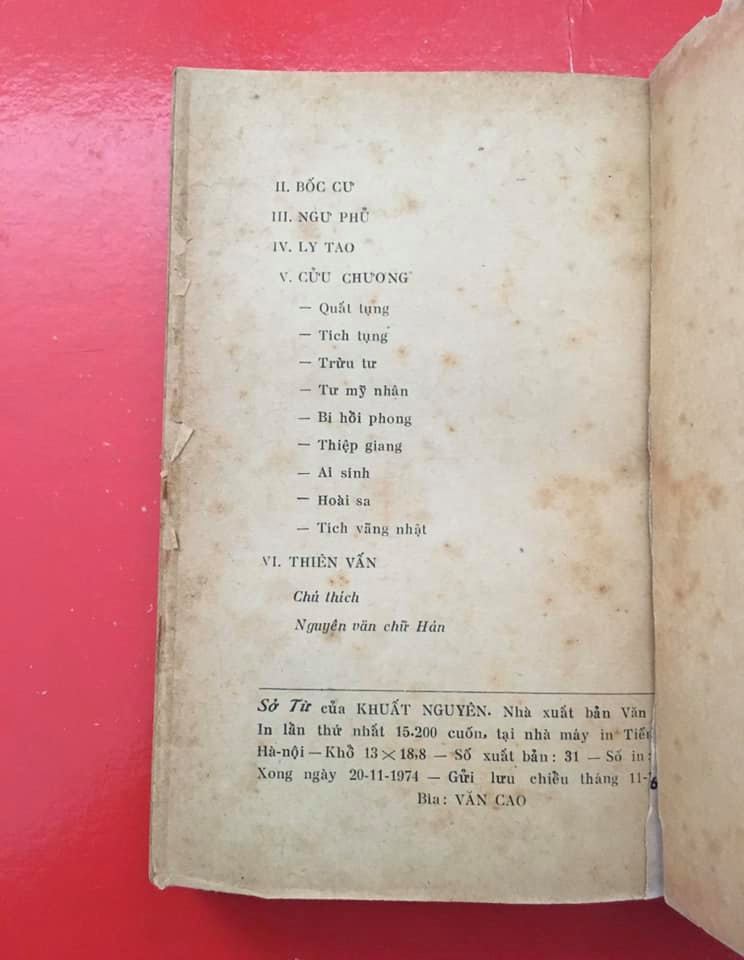 II. BỐC CƯ
III. NGƯ PHỦ
IV. LY TAO
V. CỬU CHƯƠNG
— Quất tụng
— Tích tụng
— Trừu tư
— Tư mỹ nhân
— Bi hồi phong
— Thiệp giang
— Ai sính
— Hoài sa
— Tích vãng nhật
VI. THIÊN VẤN
Chú thích
Nguyên văn chữ Hán
Sở Từ của KHUẤT NGUYÊN. Nhà xuất bản Văn
In lần thứ nhất 15.200 cuốn, tại nhà máy in
Hà-nội — Khổ 13 × 18,8 — Số xuất bản: 31 — Số in:
Xong ngày 20-11-1974 — Gửi lưu chiểu tháng 11-
Bìa: VĂN CAO